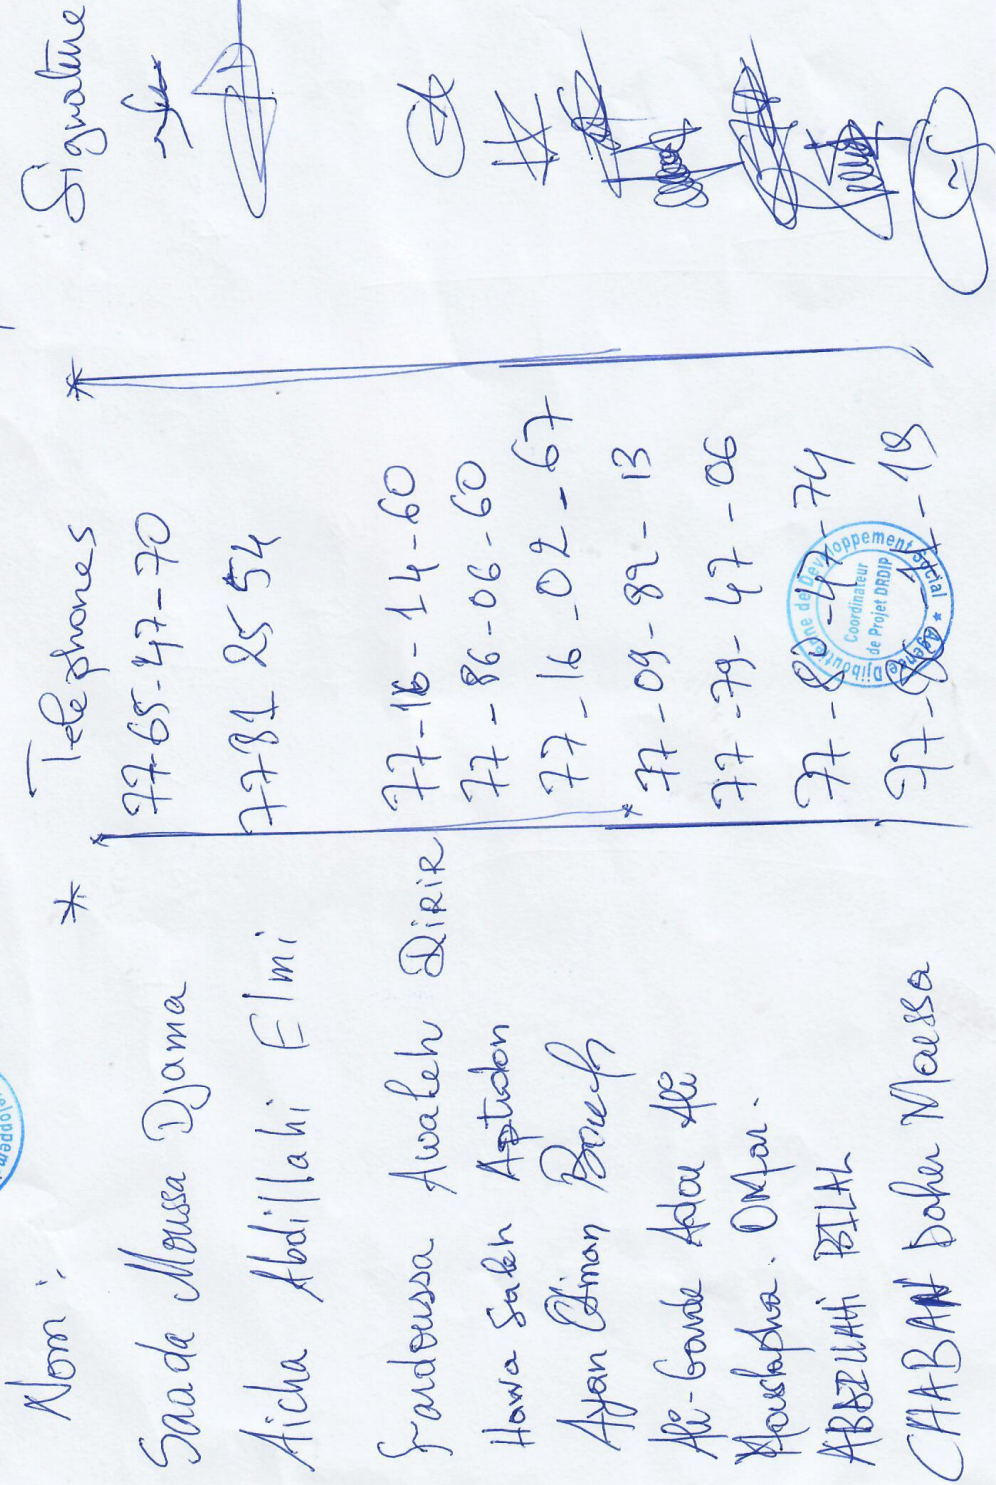 Nom : * Telephones * Signature
Saada Moussa Djama 77-65-47-70
Aicha Abdillahi Elmi 7781 25 54
Fardoussa Awaleh DiRiR 77-16-14-60
Hawa Saleh Aptidon 77-86-06-60
Ayan Elman 77-16-02-67
Ali-Gombe Adou Ali * 77-09-82-13
Moustapha. OMar. 77-79-47-06
ABDILLAHI BILAL 77-82-47-74
CHABAN Daher Moussa 77-80-14-18
Agence Djiboutienne de Développement Social *
Coordinateur
de Projet DRDIP